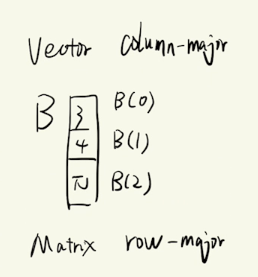 Vector column-major
B 3 B(0)
4 B(1)
π B(2)
Matrix row-major